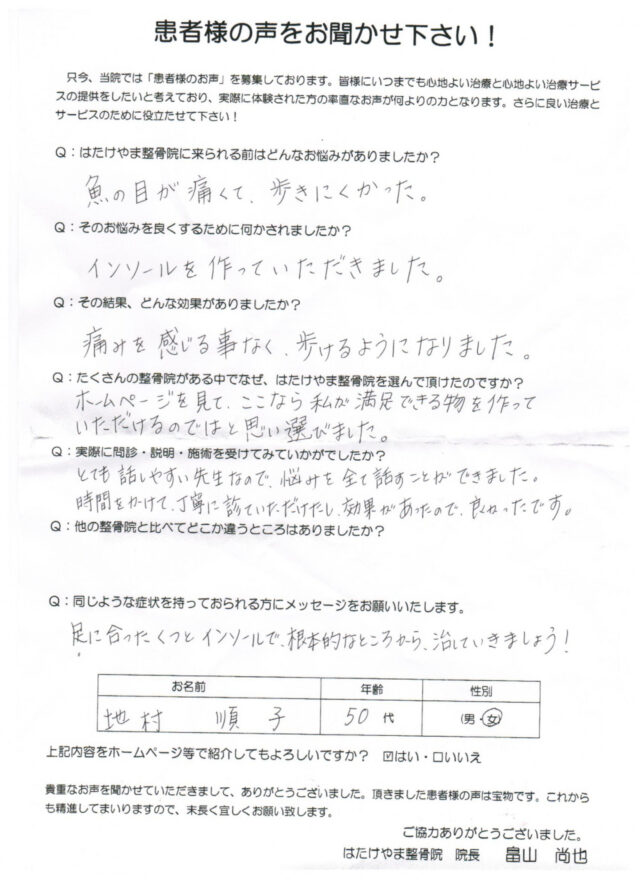 患者様の声をお聞かせ下さい！
只今、当院では「患者様のお声」を募集しております。皆様にいつまでも心地よい治療と心地よい治療サービ
スの提供をしたいと考えており、実際に体験された方の率直なお声が何よりの力となります。さらに良い治療と
サービスのために役立たせて下さい！
Q：はたけやま整骨院に来られる前はどんなお悩みがありましたか？
魚の目が痛くて、歩きにくかった。
Q：そのお悩みを良くするために何かされましたか？
インソールを作っていただきました。
Q：その結果、どんな効果がありましたか？
痛みを感じる事なく、歩けるようになりました。
Q：たくさんの整骨院がある中でなぜ、はたけやま整骨院を選んで頂けたのですか？
ホームページを見て、ここなら私が満足できる物を作って
いただけるのではと思い選びました。
Q：実際に問診・説明・施術を受けてみていかがでしたか？
とても話しやすい先生なので、悩みを全て話すことができました。
時間をかけて、丁寧に診ていただけたし、効果があったので、良かったです。
Q：他の整骨院と比べてどこか違うところはありましたか？
Q：同じような症状を持っておられる方にメッセージをお願いいたします。
足に合ったくつとインソールで、根本的なところから、治していきましょう！
お名前 年齢 性別
地村 順子 50代 (男・女)
上記内容をホームページ等で紹介してもよろしいですか？ ☑はい・□いいえ
貴重なお声を聞かせていただきまして、ありがとうございました。頂きました患者様の声は宝物です。これから
も精進してまいりますので、末長く宜しくお願い致します。
ご協力ありがとうございました。
はたけやま整骨院 院長 畠山 尚也